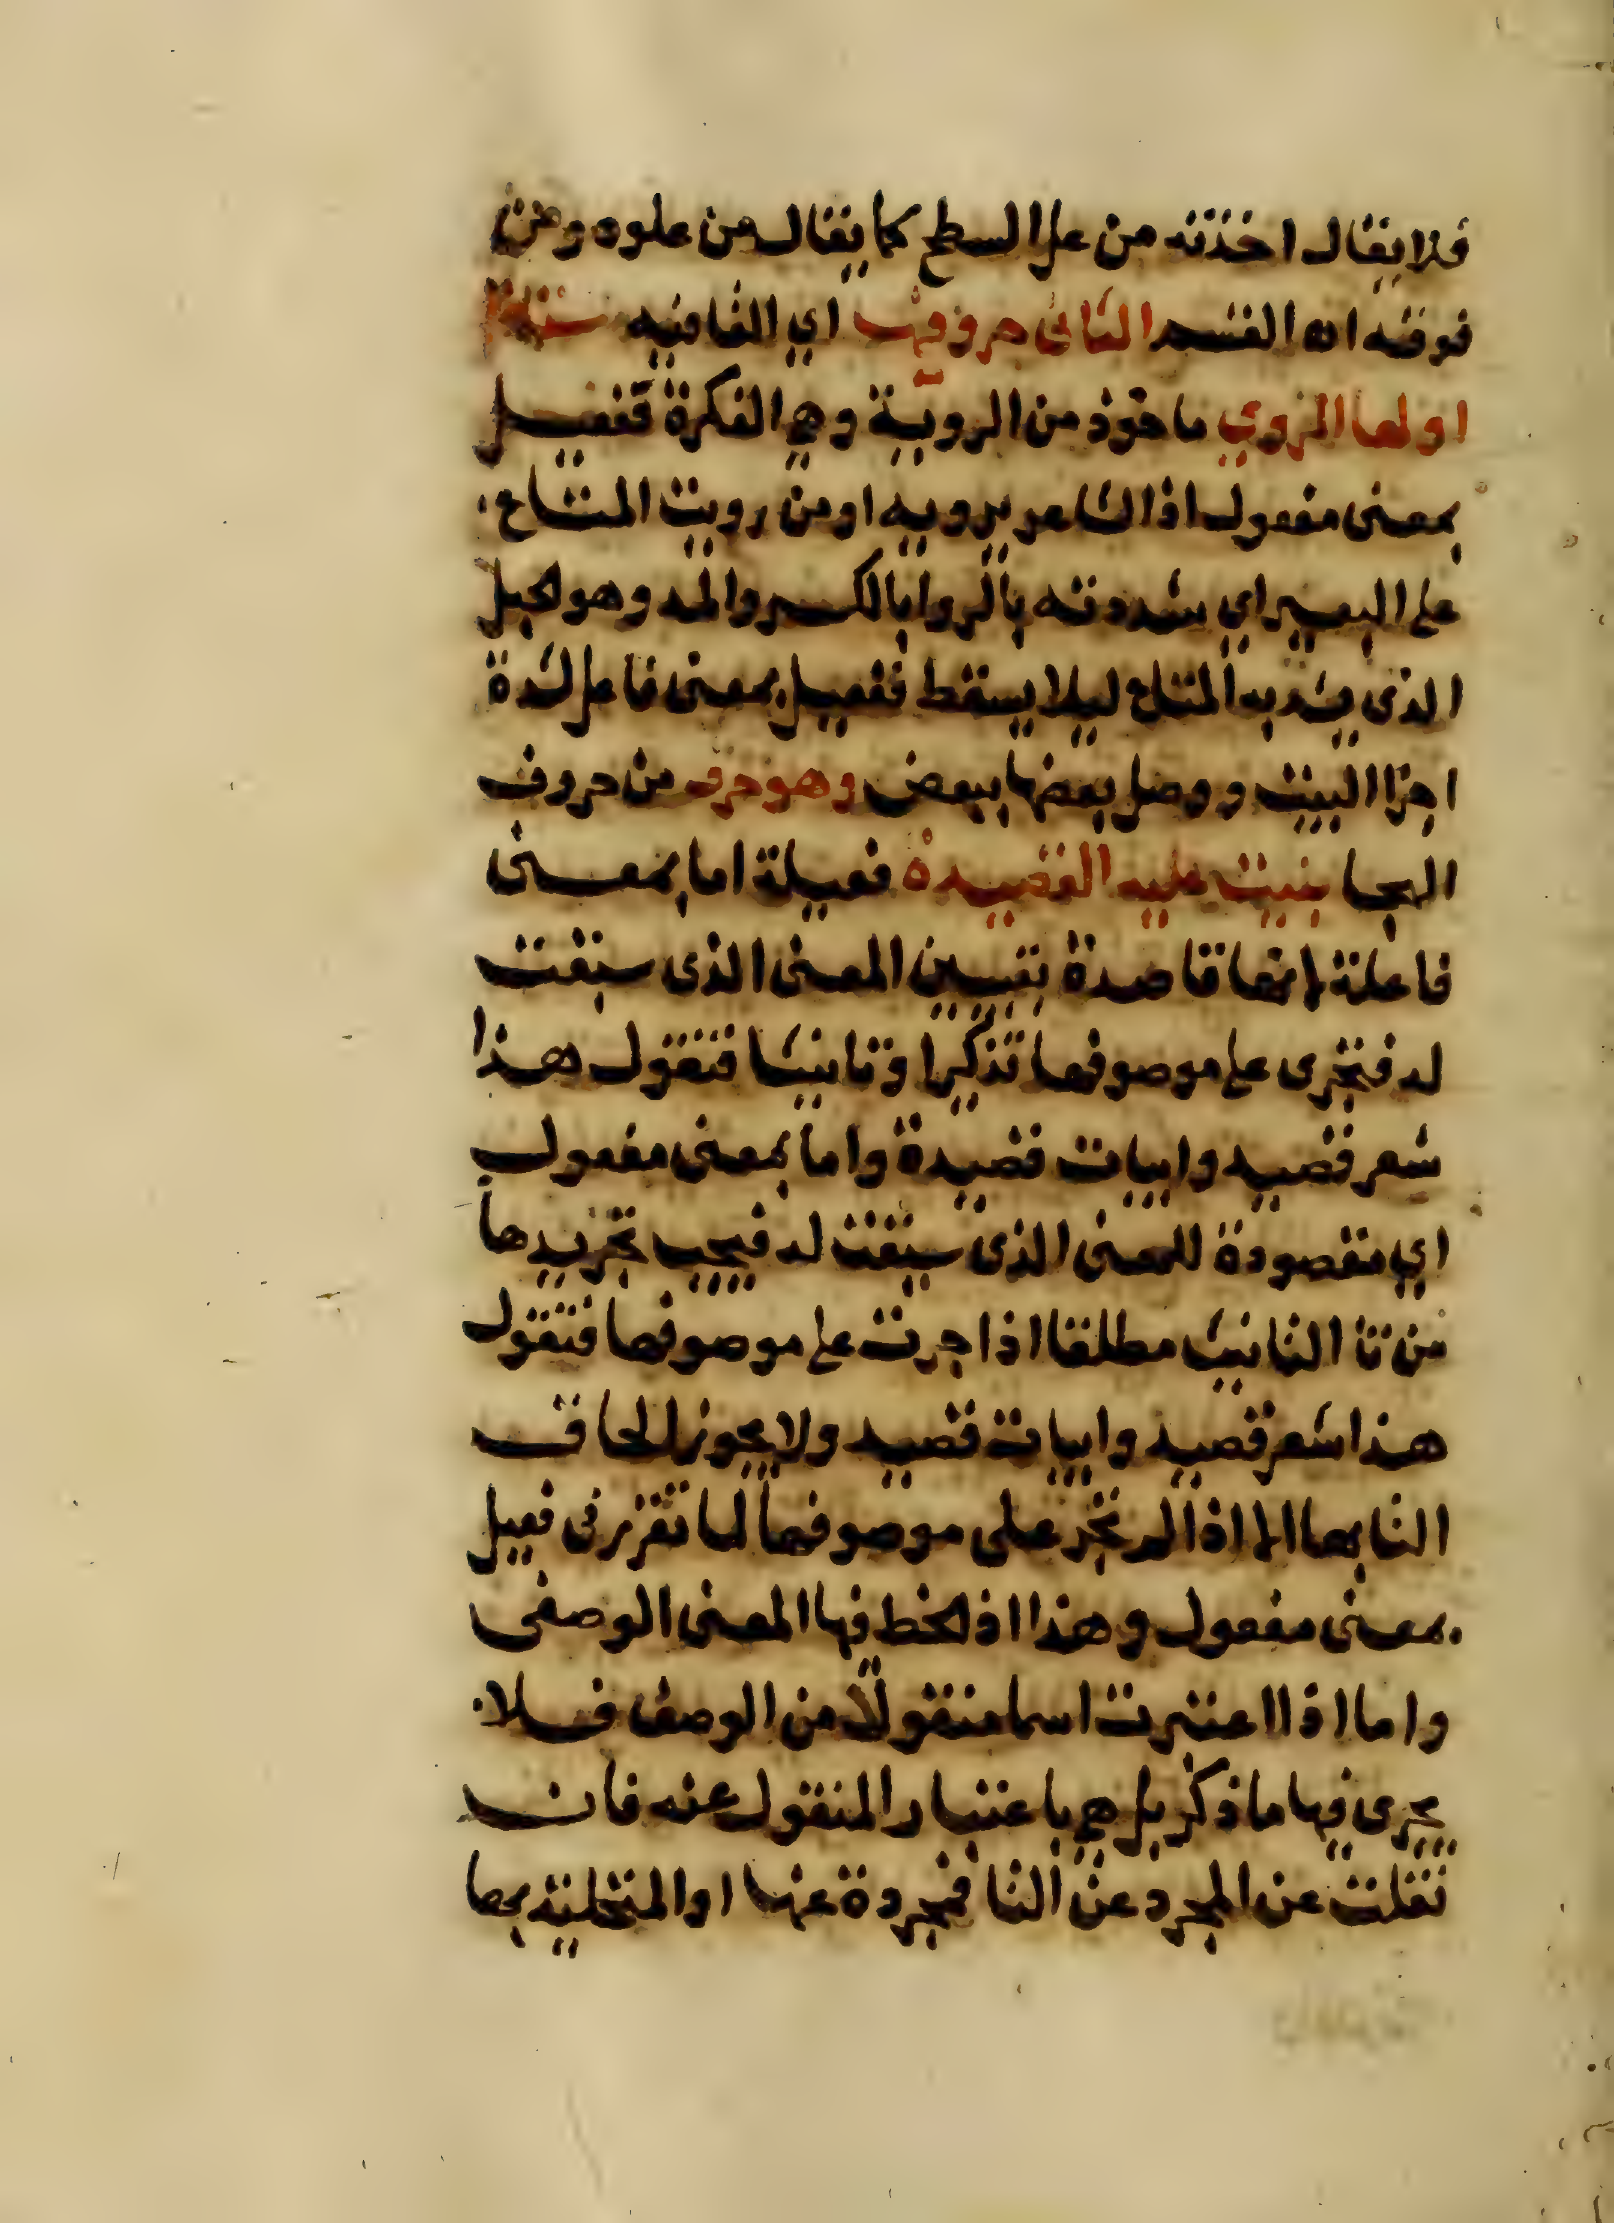 فلا يقال اخذته من علي السطح كما يقال من علوه ومن
فوقه اه القسم الثاني حروفها اي القافيه ستة
اولها الروي ماخوذ من الروية وهي الفكرة ففعيل
بمعني مفعول اذ الشاعر يرويه او من رويت المتاع
علي البعير اي شددته بالروا بالكسر والمد وهو الحبل
الذي يشد به المتاع ليلا يسقط ففعيل بمعني فاعل لشدة
اجزا البيت ووصل بعضها ببعض وهو حرف من حروف
الهجا بنيت عليه القصيدة فعيلة اما بمعني
فاعلة لانها قاصدة تبيين المعني الذي سيقت
له فتجري علي موصوفها تذكيرا وتانيثا فتقول هذا
شعر قصيد وابيات قصيدة واما بمعني مفعول
اي مقصودة للمعني الذي سيقت له فيجب تجريدها
من تا التانيث مطلقا اذا جرت علي موصوفها فتقول
هذا شعر قصيد وابيات قصيد ولا يجوز الحاق
التا بها الا اذا لم تجر علي موصوفها لما تقرر في فعيل
بمعني مفعول وهذا اذ لحظ فيها المعني الوصفي
واما اذا اعتبرت اسما منقولا من الوصف فلا
يجري فيها ما ذكر بل هي باعتبار المنقول عنه فان
نقلت عن المجرد عن التا فمجردة عنها او المتحلية بها